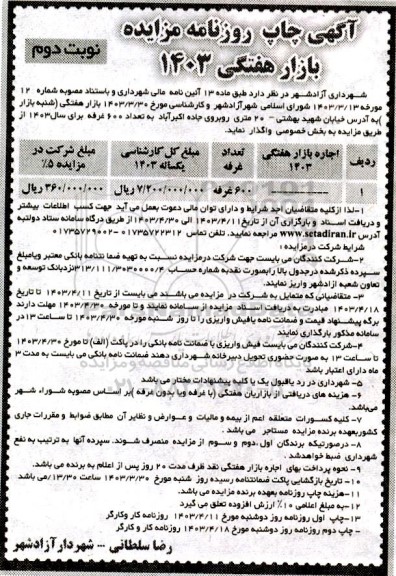 آگهی چاپ روزنامه مزایده
بازار هفتگی ۱۴۰۳
نوبت دوم
شهرداری آزادشهر در نظر دارد طبق ماده ۱۳ آئین نامه مالی شهرداری و باستناد مصوبه شماره ۱۲
مورخه ۱۴۰۳/۳/۱۳ شورای اسلامی شهرآزادشهر و کارشناسی مورخ ۱۴۰۳/۳/۳۰ بازار هفتگی (شنبه بازار
)به آدرس خیابان شهید بهشتی – ۲۰ متری روبروی جاده اکبرآباد به تعداد ۶۰۰ غرفه برای سال۱۴۰۳ از
طریق مزایده به بخش خصوصی واگذار نماید.
ردیف	اجاره بازار هفتگی ۱۴۰۳	تعداد غرفه	مبلغ کل کارشناسی یکساله ۱۴۰۳	مبلغ شرکت در مزایده ۵٪
۱	---------	۶۰۰ غرفه	۷/۲۰۰/۰۰۰/۰۰۰ ریال	۳۶۰/۰۰۰/۰۰۰ ریال
۱–لذا ازکلیه متقاضیان اجد شرایط و دارای توان مالی دعوت بعمل می آید جهت کسب اطلاعات بیشتر
و دریافت اسناد و بارگزاری آن از تاریخ ۱۴۰۳/۴/۱۱ الی ۱۴۰۳/۴/۳۰از طریق درگاه سامانه ستاد دولتبه
آدرس www.setadiran.ir مراجعه نمایید. تلفن تماس ۰۱۷۳۵۷۲۲۳۱۲ – ۰۱۷۳۵۷۲۹۰۰۲
شرایط شرکت درمزایده :
۲–شرکت کنندگان می بایست جهت شرکت درمزایده نسبت به تهیه ضما نتنامه بانکی معتبر ویامبلغ
سپرده ذکرشده درجدول بالا رابصورت نقدبه شماره حساب ۳۱۳/۱۱۱/۳۰۳۰۰۰۰/۴نزدبانک توسعه و
تعاون شعبه ازادشهر واریز نمایند.
۳– متقاضیانی که متمایل به شرکت در مزایده می باشند می بایست از تاریخ ۱۴۰۳/۴/۱۱ تا تاریخ
۱۴۰۳/۴/۱۸ مبادرت به دریافت اسناد مزایده از سامانه نمایند و تا مورخه ۱۴۰۳/۴/۳۰ مهلت دارند
برگه پیشنهاد قیمت و ضمانت نامه یافیش واریزی را تا روز شنبه مورخه ۱۴۰۳/۴/۳۰ تا ساعت۱۳ در
سامانه مذکور بارگذاری نمایند
۴–شرکت کنندگان می بایست فیش واریزی یا ضمانت نامه بانکی را در پاکت (الف) تا مورخ ۱۴۰۳/۴/۳۰
تا ساعت ۱۳ به صورت حضوری تحویل دبیرخانه شهرداری دهند ضمانت نامه بانکی می بایست به مدت ۳
ماه دارای اعتبار باشد
۵– شهرداری در رد یاقبول یک یا کلیه پیشنهادات مختار می باشد
۶– هزینه های دریافتی از بازاریان هفتگی (با غرفه و یا بدون غرفه )بر اساس مصوبه شوراء شهر
میباشد.
۷– کلیه کسورات متعلقه اعم از بیمه و مالیات و عوارض و نظایر آن مطابق ضوابط و مقررات جاری
کشوربعهده برنده مزایده مستاجر می باشد .
۸– درصورتیکه برندگان اول ،دوم و سوم از مزایده منصرف شوند. سپرده آنها به ترتیب به نفع
شهرداری ضبط خواهدشد .
۹– نحوه پرداخت بهای اجاره بازار هفتگی نقد ظرف مدت ۲۰ روز پس از اعلام به برنده می باشد.
۱۰– تاریخ بازگشایی پاکت ضمانتنامه رسیده روز شنبه مورخ ۱۴۰۳/۳/۳۰ ساعت ۱۳/۳۰می باشد
۱۱–هزینه چاپ روزنامه بعهده برنده مزایده می باشد.
۱۲–به مبلغ اعلامی ۱۰٪ ارزش افزوده تعلق می گیرد
۱۳–چاپ اول روزنامه روز دوشنبه مورخ ۱۴۰۳/۴/۱۱ روزنامه کار وکارگر
– چاپ دوم روزنامه روز دوشنبه مورخ ۱۴۰۳/۴/۱۸ روزنامه کار و کارگر
رضا سلطانی --- شهردارآزادشهر